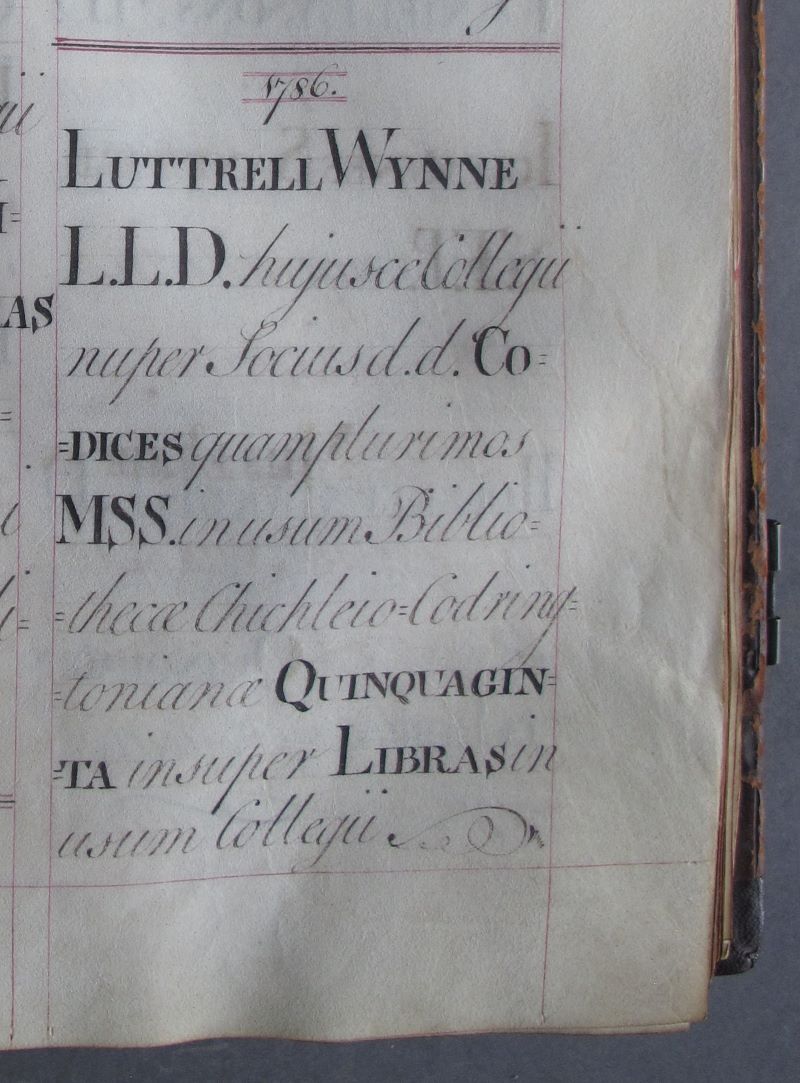 1786.
LUTTRELL WYNNE
L.L.D. hujusce Collegii
nuper Socius d.d. CO=
=DICES quamplurimos
MSS. in usum Biblio=
=thecæ Chichleio=Codring=
=tonianæ QUINQUAGIN=
=TA insuper LIBRAS in
usum Collegii
AS